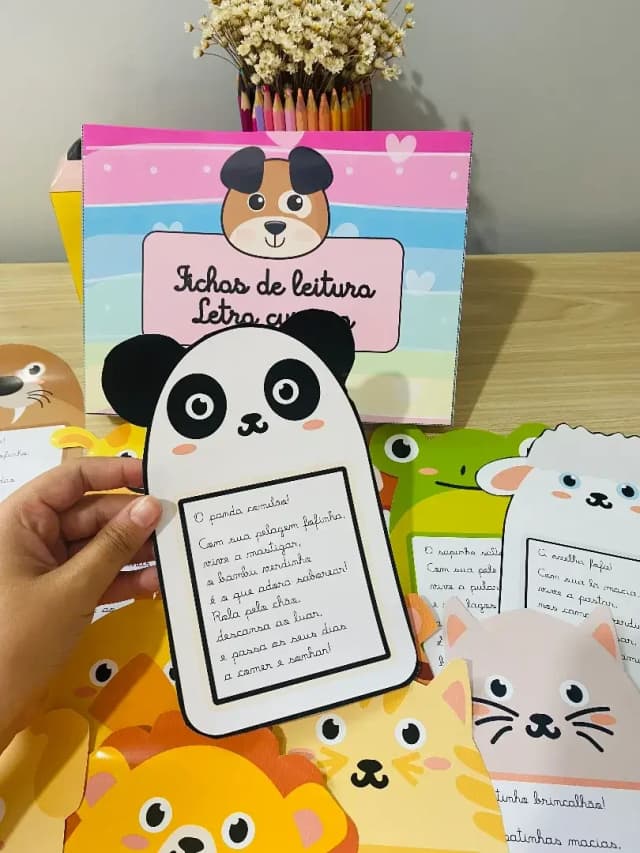 Fichas de leitura
Letra cursiva
O panda comilão!
Com sua pelagem fofinha,
vive a mastigar,
o bambu verdinho
é o que adora saborear!
Rola pelo chão,
descansa ao luar,
e passa os seus dias
a comer e sonhar!
O sapinho
Com sua pele
vive a pular
lagos
A ovelha fofa!
Com sua lã macia,
vive a pastar,
nos
tinho brincalhão!
patinhas macias,